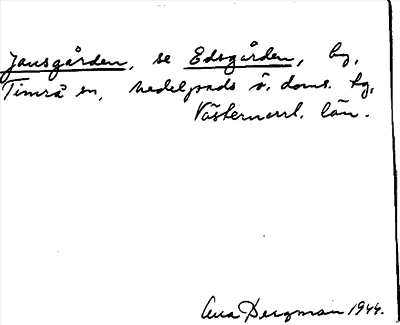 Jansgården, se Edsgården, by,
Timrå sn, Medelpads ö. doms. tg,
Västernorrl. län.
Ana Bergman 1944.